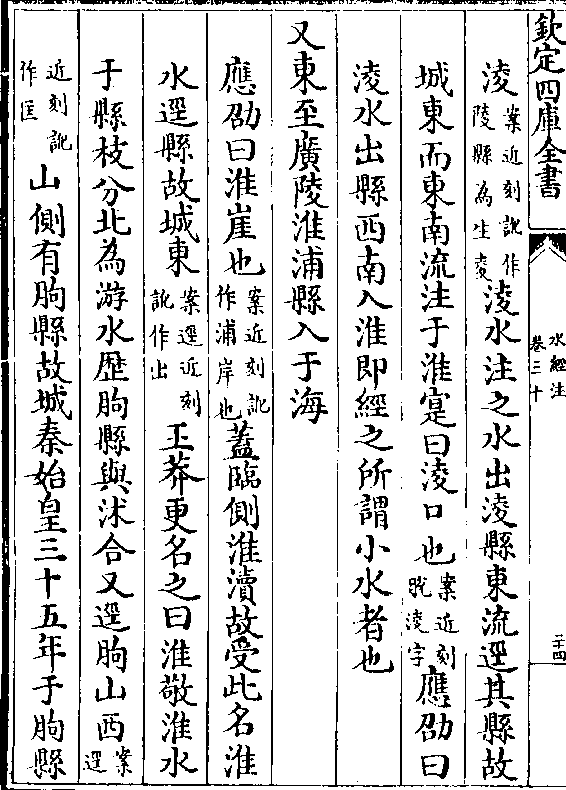 欽定四庫全書
水經注
卷三十
二十四
淩案近刻訛作陵縣為生夌淩水注之水出淩縣東流逕其縣故
城東而東南流注于淮寔曰淩口也案近刻脫淩字應劭曰
淩水出縣西南入淮即經之所謂小水者也
又東至廣陵淮浦縣入于海
應劭曰淮崖也案近刻訛作浦岸也蓋臨側淮瀆故受此名淮
水逕縣故城東案逕近刻訛作出王莽更名之曰淮敬淮水
于縣枝分北為游水歷朐縣與沭合又逕朐山西案逕
近刻訛作匡山側有朐縣故城秦始皇三十五年于朐縣